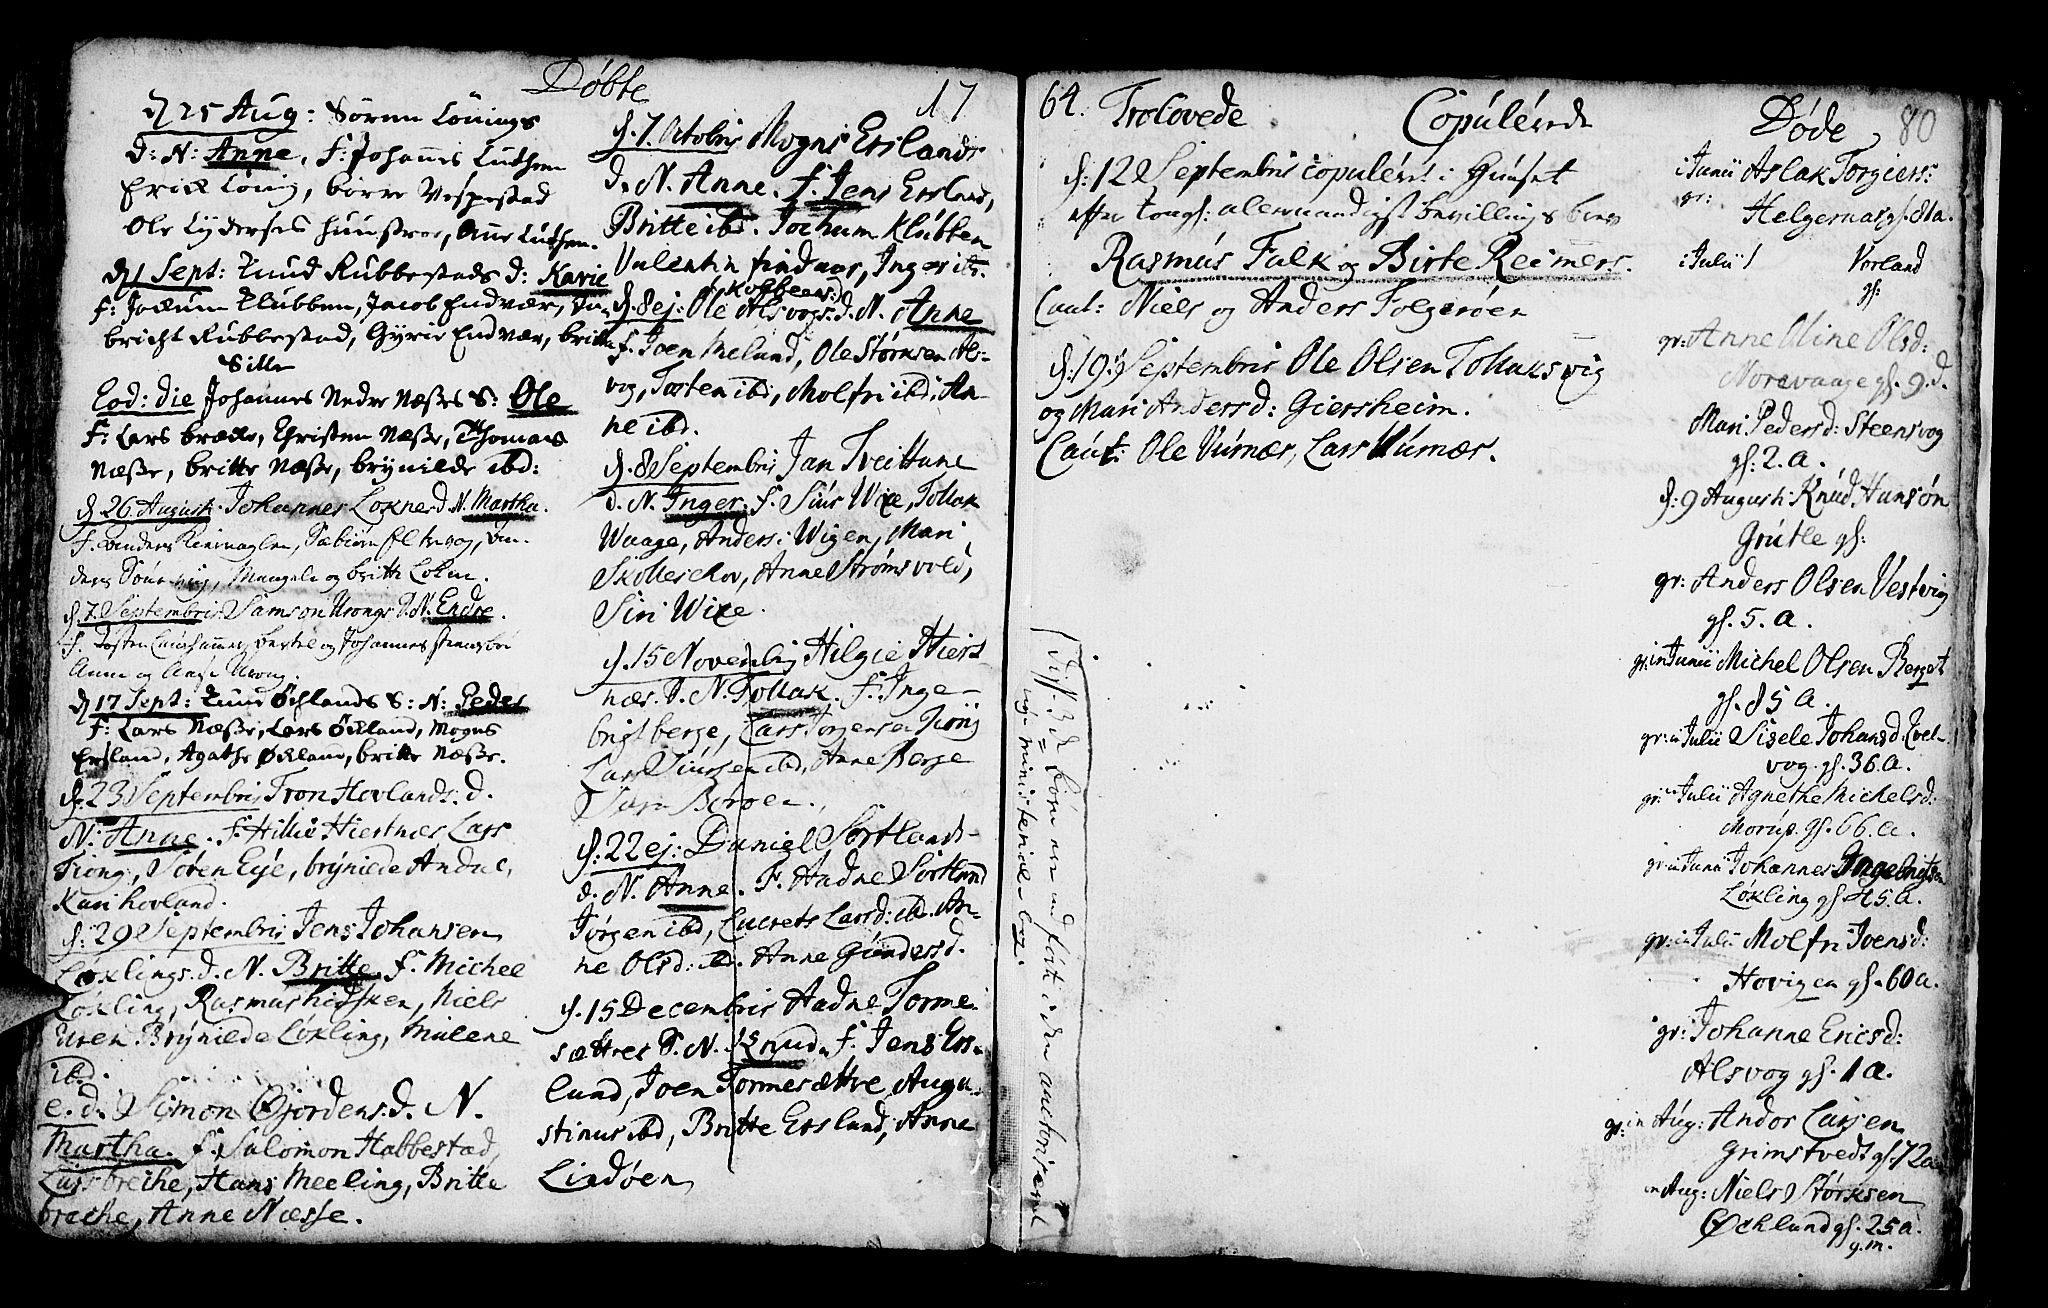 Døbte
17
d. 25 Aug: Søren Lönings
d: N: Anne, F: Johannes Luthsen
Erick Lönig, börre Vespestad
Ole Lydersøs
d. 1 Sept: Knud Rubbestads d: Karie
F: Jockum Klubben, Jacob Endvær,
bricht Rubbestad, Gyrie Endvær, britte
Sille
Eod: die Johannes Nedre Næsses S: Ole
F: Lars bræcke, Christen Næsse, Thomas
Næsse, britte Næsse, brynilde ibd:
d. 26 Augusti Johannes Løkne d. N. Martha.
F. Anders
Mangele og britte Løkne.
d. 7 Septembris Samson Urongs S. N. Endre.
F. Tosten Bertel og Johannes Stensbøe
Anne og Urong.
d. 17 Sept: Knud Öchlands S: N: Peder
F: Lars Næsse, Lars Öckland, Mogns
Ersland, Agathe Öckland, britte Næsse.
d. 23 Septembris Tron Hovlands: d.
N: Anne. F. Hillie Hiertnæs Lars
Tiong, Søren Eye, brynilde Andal,
Kari hovland.
d: 29 Septembris Jens Johansen
Løklings. d. N. Britte. F. Michel
Løkling, Rasmus hidsken, Niels
Even Brynilde Løkling, Malene
ibd.
e. d. Simon Øjordens. d. N.
Martha. F. Salomon Habbestad,
Lars breche, Hans Meeling, Britte
breche, Anne Næsse.
d. 7. Octobris Mogns Erslands
d. N. Anne. F. Jens Ersland,
Britte ibd. Jochum Klubben
Valentin findaas, Inger ibd.
Kolbeens:
d. 8 ej: Ole Alsvogs. d. N. Anne
F. Joen Meland, Ole Størksen Als-
vog, Torsten ibd, Molfri ibd, An-
ne ibd.
d. 8 Septembris Jan Tveittune
d. N. Inger. F. Siur Wixe, Tollak
Waage, Anders i Wigen, Mari
Skollerehov, Anne Strømsvold,
Siri Wixe.
d. 15 Novembris Hilgie Hiert-
næs. S. N. Tollak. F. Inge-
brigt berge, Lars Jorgensen Tiong
Lars Siursen ibd, Anne Berge
Sara Børøen.
d: 22 ej: Daniel Sortlands
d. N. Anne. F. Hadne Sortland
Jørgen ibd, Lucrets Larsd: ibd. An-
ne Olsd: ibd. Anne Gundersd.
d. 15 Decembris Hadne Torme-
sættres S. N. Knud. F. Jens Ers-
land, Joen Tormesættre, Augu-
stinus ibd, Britte Ersland, Anne
Lindøen
64. Trolovede
Copulerede
Døde
80
d: 12 Septembris copuleret i Huuset
efter Kongl: allernaadigst bevillings brev
Rasmus Falk og Birte Reimers.
Caut: Niels og Anders Folgerøen
d: 19 Septembris Ole Olsen Tollaksvig
og Mari Andersd: Giersheim.
Caut: Ole Vurnæs, Lars Wurnæs.
disse 3de børn ere indført i den auctoriserede
nye ministerial bog.
i Junii Aslak Torgiers:
gr: Helgernæs gl. 81 a.
i Julii 1 Vorland
gl:
gr: Anne Oline Olsd:
Norevaage gl. 9. d.
Mari Pedersd: Steensvog
gl: 2. a.
d: 9 Augusti Knud Hansøn
Grutle gl:
gr: Anders Olsen Vestvig
gl. 5. a.
gr: in Junii Michel Olsen Berget
gl. 85 a.
gr: in Julii Sisele Johansd.
vog. gl. 36. a.
gr: in Julii Agnethe Michelsd:
Morup. gl. 66. a.
gr: in Junii Johannes Ingebrigtsen
Løkling gl. 45. a.
gr: in Julii Molfri Joensd:
Hovigen gl. 60 a.
gr: Johanne Ericsd:
Alsvog gl. 1 a.
gr: in Aug: Andor Larsen
Grimstvedt gl. 72 a.
in Aug: Niels Størksen
Øchland gl. 25 a.
9. m.